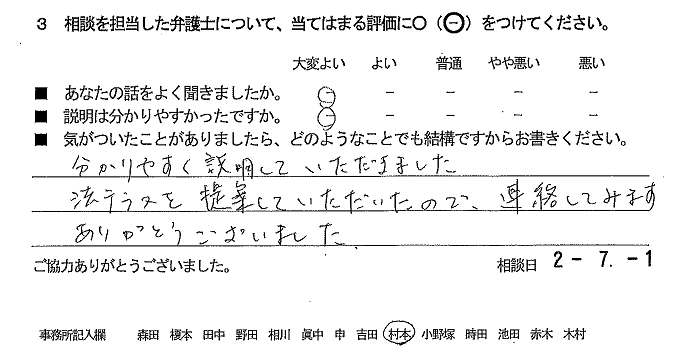 3 相談を担当した弁護士について、当てはまる評価に○（⊖）をつけてください。
大変よい よい 普通 やや悪い 悪い
■ あなたの話をよく聞きましたか。 ⊖ － － － －
■ 説明は分かりやすかったですか。 ⊖ － － － －
■ 気がついたことがありましたら、どのようなことでも結構ですからお書きください。
分かりやすく説明していただきました
法テラスを提案していただいたので、連絡してみます
ありがとうございました
ご協力ありがとうございました。 相談日 2 - 7. - 1
事務所記入欄 森田 榎本 田中 野田 相川 眞中 申 吉田 村本 小野塚 時田 池田 赤木 木村